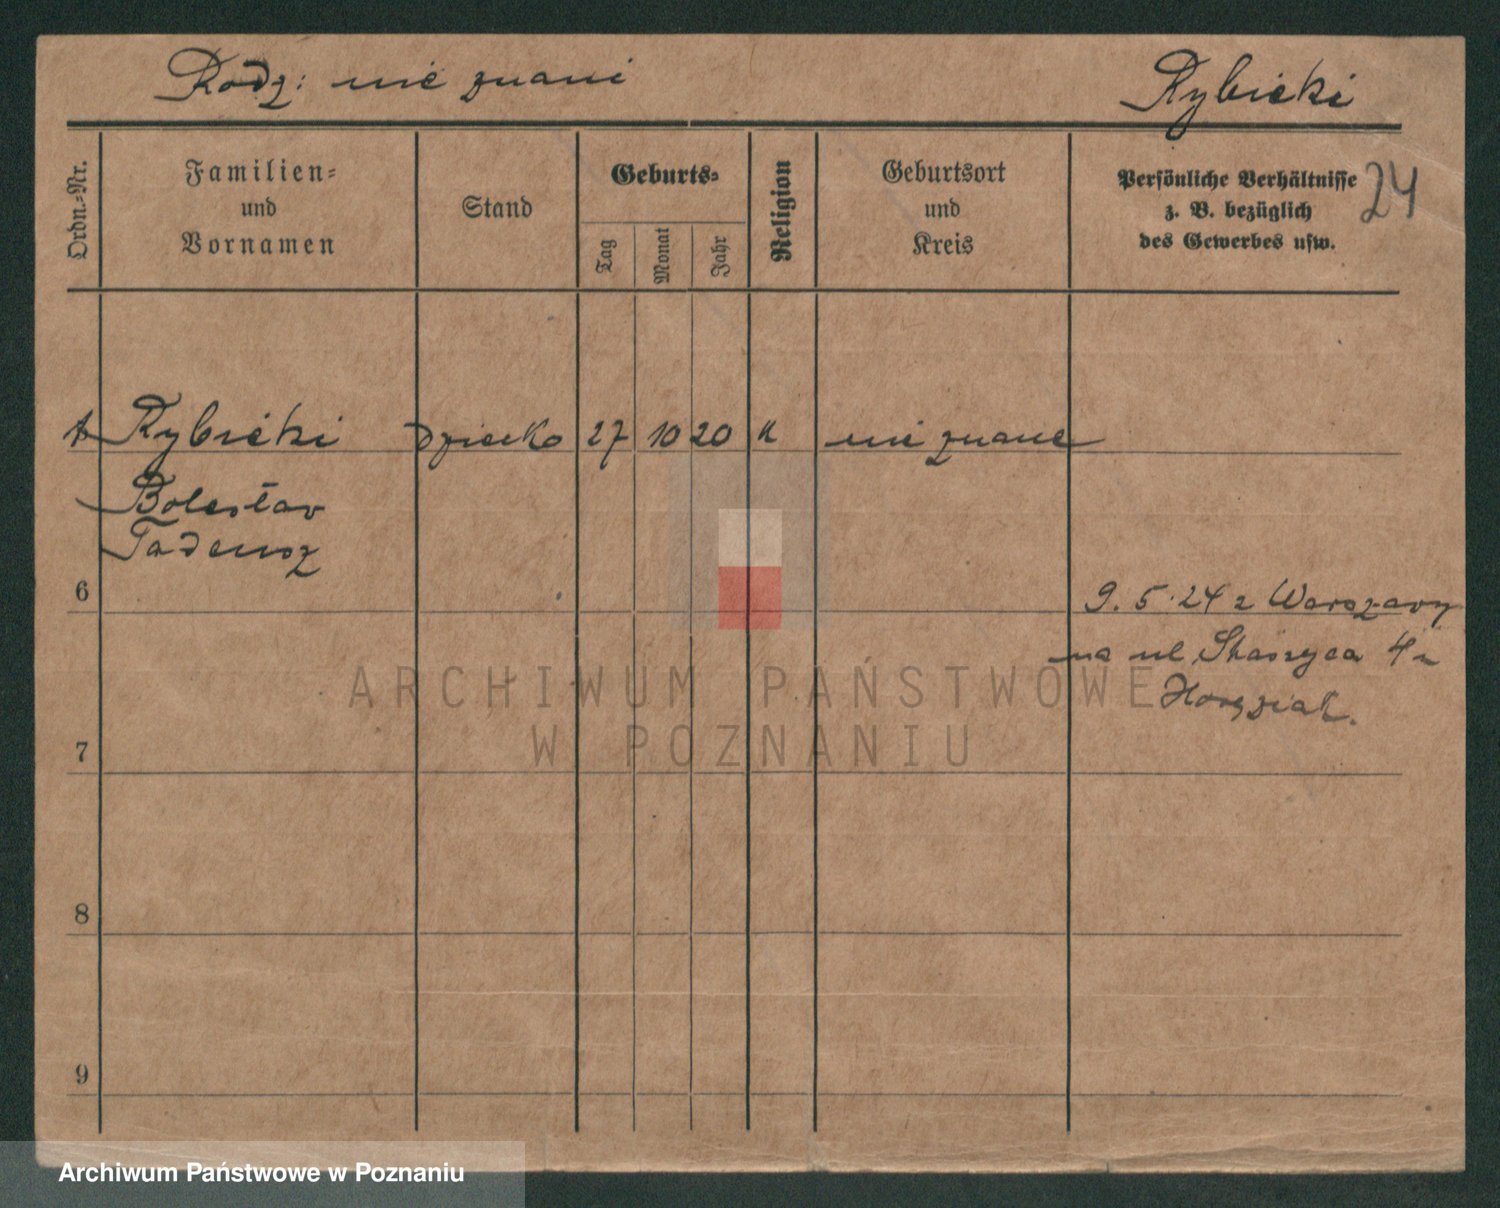 Rodz: nie znani
Rybicki
24
Ordn.-Nr.
Familien-
und
Vornamen
Stand
Geburts-
Tag
Monat
Jahr
Religion
Geburtsort
und
Kreis
Persönliche Verhältnisse
z. B. bezüglich
des Gewerbes usw.
Rybicki dziecko 27 10 20 K nie znane
Bolesław
Tadeusz
6
9.5.24 z Warszawy
na ul. Staszyca 4
7
8
9
ARCHIWUM PAŃSTWOWE
W POZNANIU
Archiwum Państwowe w Poznaniu